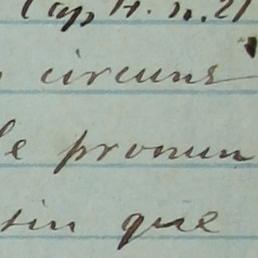 Cap 4. n. 21
circuns
le pronun
sin que